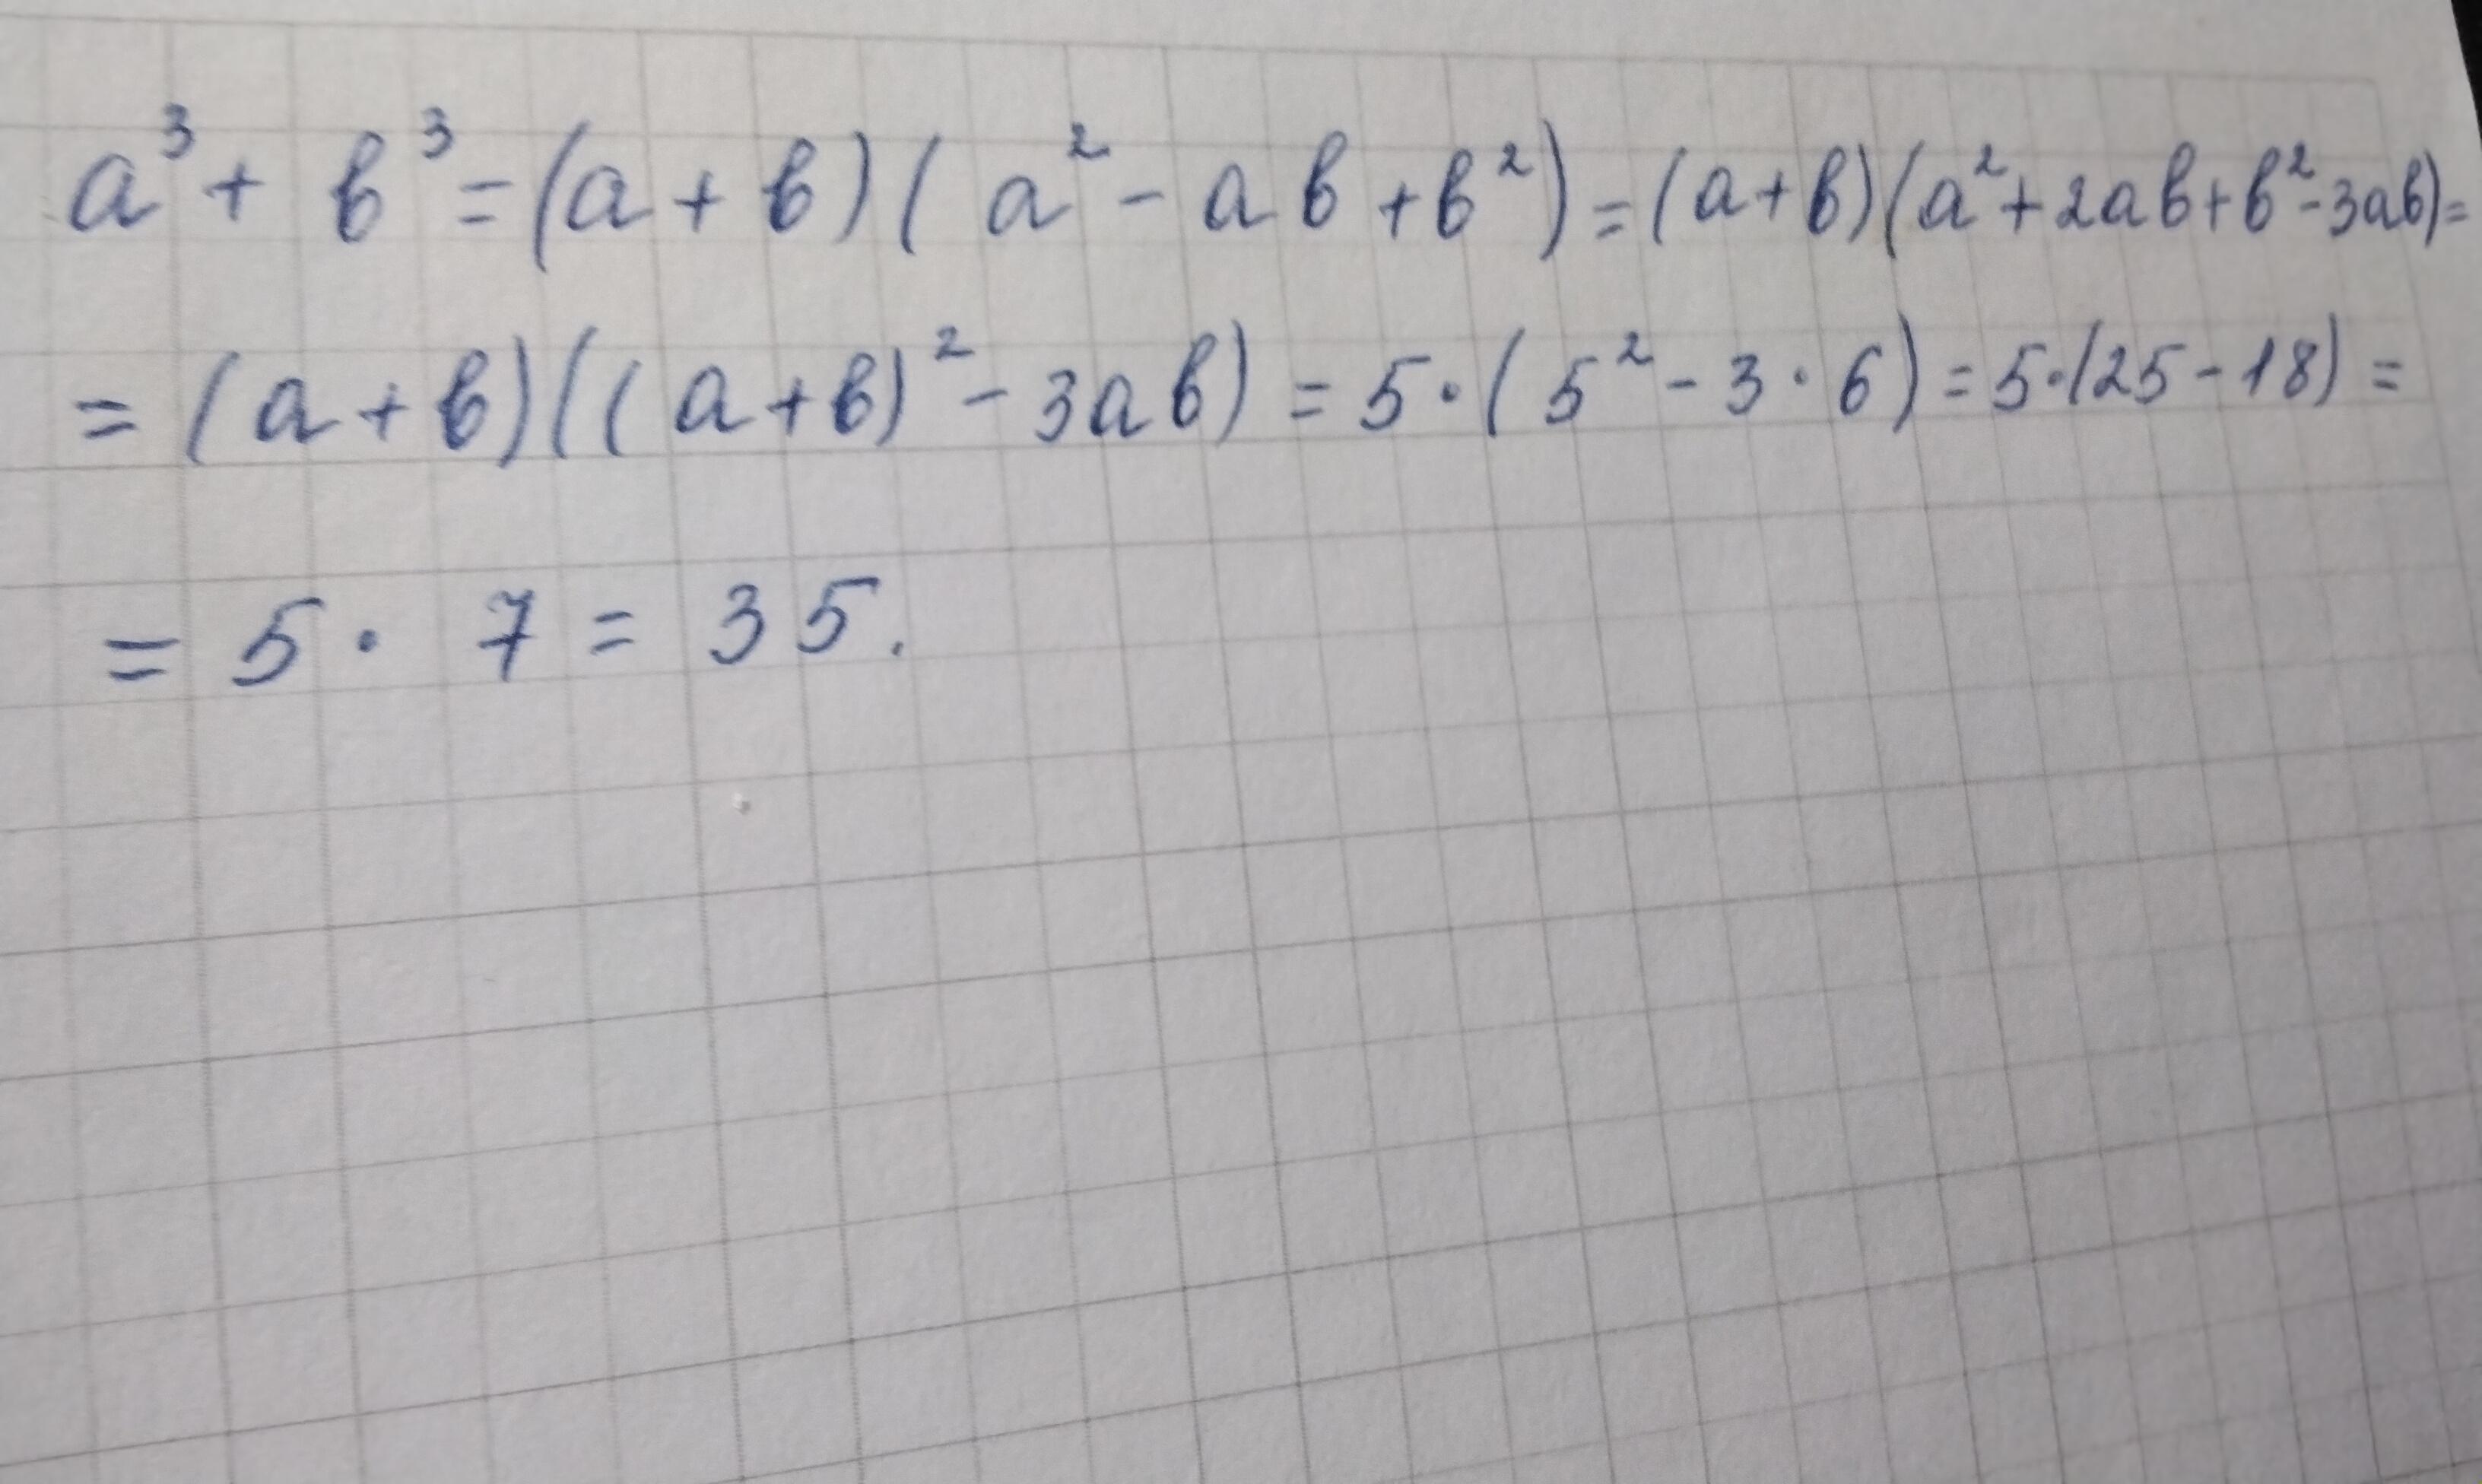 a³ + b³ = (a + b)(a² - ab + b²) = (a+b)(a² + 2ab + b² - 3ab) =
= (a + b)((a + b)² - 3ab) = 5 · (5² - 3 · 6) = 5·(25 - 18) =
= 5 · 7 = 35.